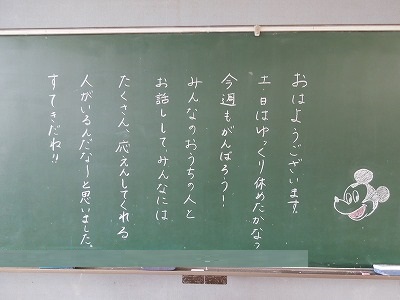 おはようございます。
土・日はゆっくり休めたかな？
今週もがんばろう！
みんなのおうちの人と
お話しして、みんなには
たくさん、応えんしてくれる
人がいるんだな〜と思いました。
すてきだね!!